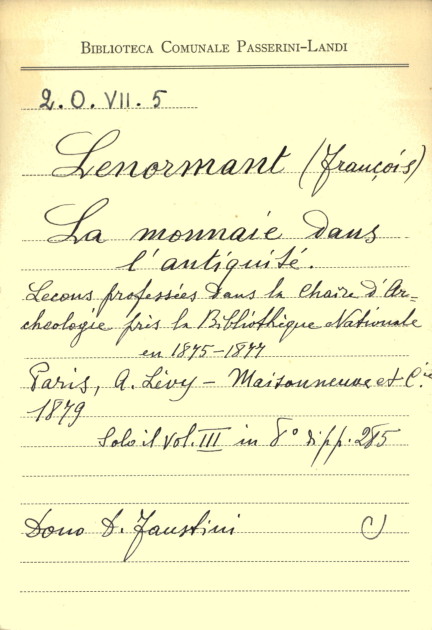 BIBLIOTECA COMUNALE PASSERINI-LANDI
2.O.VII.5
Lenormant (François)
La monnaie dans
l'antiquité.
Lecons professées dans la Chaire d'Ar=
cheologie près la Bibliothèque Nationale
en 1875-1877
Paris, A. Lévy - Maisonneuve et C.ie
1879
Solo il vol. III in 8° di pp. 285
Dono D. Faustini